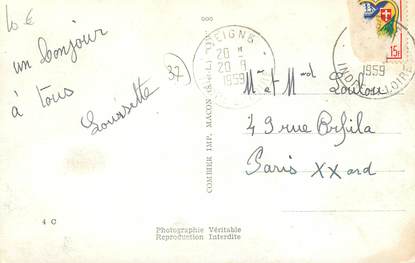 10 €
un bonjour
à tous
Louisette
(37)
COMBIER IMP. MACON (S.-et-L.)
EIGNÉ
20 H
20-9
1959
15F
1959
INDRE LOIRE
Mr et Mme Loulou
49 rue Orfila
Paris XX ord
4 C
Photographie Véritable
Reproduction Interdite